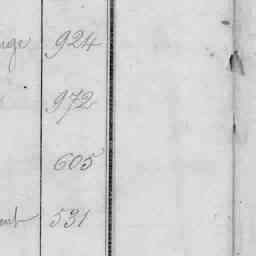 924
972
605
531